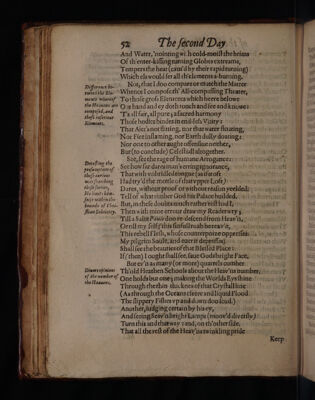 52 The second Day
And Water, 'nointing with cold-moist the brims
Of th'enter-kissing turning Globes extreame,
Tempers the heat (caus'd by their rapid turning)
Which els would set all th'elements a-burning.
Difference between the Elements whereof the Heavens are composed, and these inferiour Elements.
Not, that I doo compare or match the Matter
Whence I compose th' All-compassing Theater,
To those grosse Elements which heere belowe
Our hand and ey doth touch and see and knowe:
'T's all fair, all pure; a sacred harmony
Those bodies bindes in end-les Vnity:
That Aier's not flitting, nor that water floating,
Nor Fire inflaming, nor Earth dully doating:
Nor one to other aught offensiue neither,
But (to conclude) Celestiall altogether.
Detesting the presumption of those curious searching these secrets, He limits himselfe within the bounds of Christian Sobriety.
See, see the rage of humane Arrogance:
See how far dares man's erring ignorance,
That with vnbridled tongue (as if it oft
Had try'd the mettle of that vpper Loft)
Dares, without proof or without reason yeelded,
Tell of what timber God his Palace builded.
But, in these doubts much rather rest had I,
Then with mine errour draw my Reader wry;
Till a Saint Paul doo re-descend from Heav'n,
Or till my self (this sinfull roab be reav'n,
This rebell Flesh, whose counterpoize oppresses
My pilgrim Soule, and euer it depresses)
Shall see the beauties of that Blessed Place:
If (then) I ought shall see, saue Gods bright Face.
Diuers opinions of the number of the Heauens.
But eu'n as many (or more) quarrels comber
Th'old Heathen Schools about the Heav'ns number.
One holds but one; making the Worlds Eyes shine
Through the thin-thicknes of that Crystall line
(As through the Oceans cleere and liquid Flood
The slippery Fishes vp and down doo scud.)
Another, iudging certain by his ey,
And seeing Seav'n bright Lamps (moov'd diuersly)
Turn this and that way: and, on th'other side,
That all the rest of the Heav'ns twinkling pride
Keep